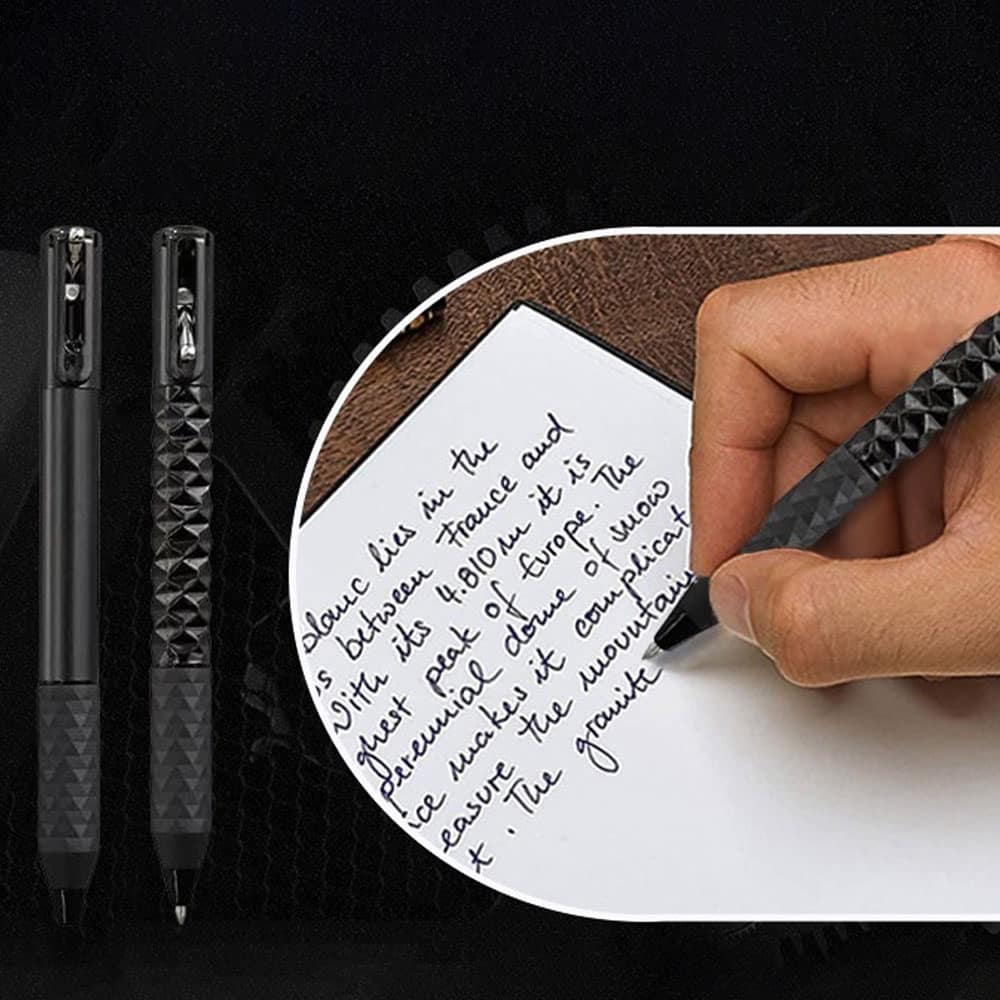 blanc lies in the
is between France and
With its 4.810 m it is
ghest peak of Europe. The
perennial dome of snow
ice makes it complicat
easure the mountain
t. The granite